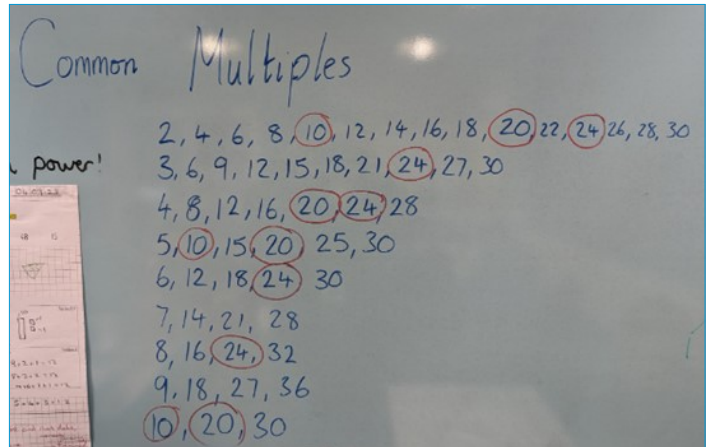 Common Multiples
2, 4, 6, 8, 10, 12, 14, 16, 18, 20 22, 24 26, 28, 30
power!
3, 6, 9, 12, 15, 18, 21, 24, 27, 30
4, 8, 12, 16, 20, 24, 28
5, 10, 15, 20, 25, 30
6, 12, 18, 24 30
7, 14, 21, 28
8, 16, 24, 32
9, 18, 27, 36
10, 20, 30